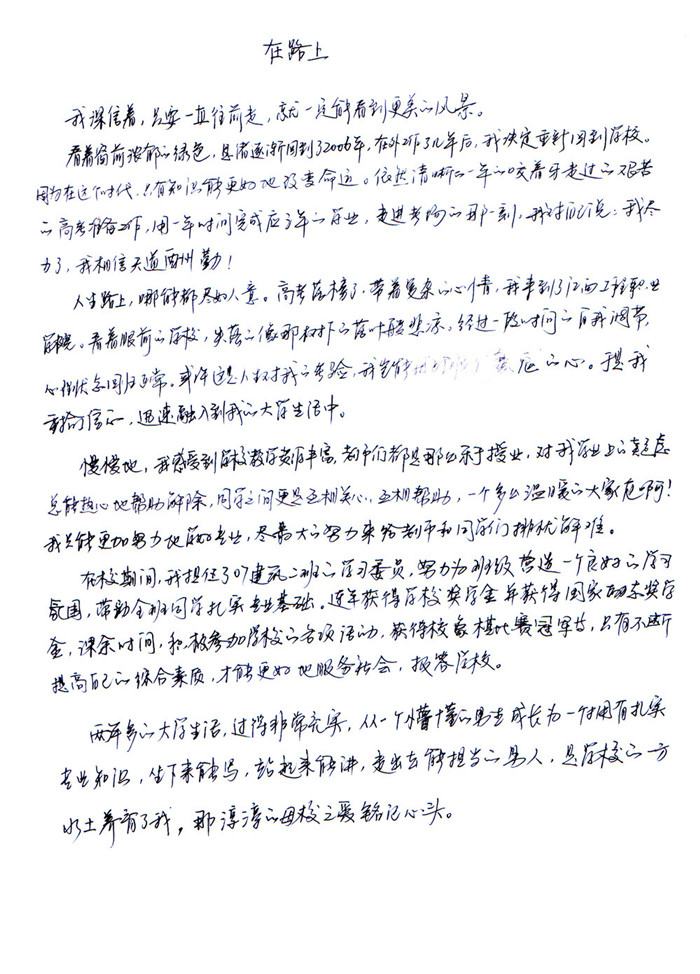 在路上
我深信着，只要一直往前走，就一定能看到更美的风景。
看着窗前浓郁的绿色，思绪逐渐回到了2006年，在外工作了几年后，我决定重新回到学校。
因为在这个时代，只有知识能更好地改变命运。依然清晰的一年的咬着牙走过的艰苦
的高考准备工作，用一年时间完成应3年的学业，走进考场的那一刻，我对自己说：我尽
力了，我相信天道酬勤！
人生路上，哪能都尽如人意。高考落榜了，带着复杂的心情，我来到了江西工程职业
学院。看着眼前的学校，失落的像那村外的落叶般悲凉，经过一段时间的自我调节，
心情状态回归正常。或许这是人权对我的考验，我岂能 的心。于是我
重拾了信心，迅速融入到我的大学生活中。
慢慢地，我感受到学校教学资源丰富，老师们都是那么乐于授业，对我学业上的疑虑
总能热心地帮助解除，同学之间更是互相关心，互相帮助，一个多么温暖的大家庭啊！
我只能更加努力地学好专业，尽最大的努力来给老师和同学们排忧解难。
在校期间，我担任了07建筑二班的学习委员，努力为班级营造一个良好的学习
氛围，带动全班同学扎实专业基础。连年获得学校奖学金并获得国家励志奖学
金，课余时间，积极参加学校的各项活动，获得校象棋比赛冠军等，只有不断
提高自己的综合素质，才能更好地服务社会，报答学校。
两年多的大学生活，过得非常充实，从一个懵懂的男生成长为一个拥有扎实
专业知识，坐下来能写，站起来能讲，走出去能担当的男人，是学校的一方
水土养育了我，那淳淳的母校之爱铭记心头。